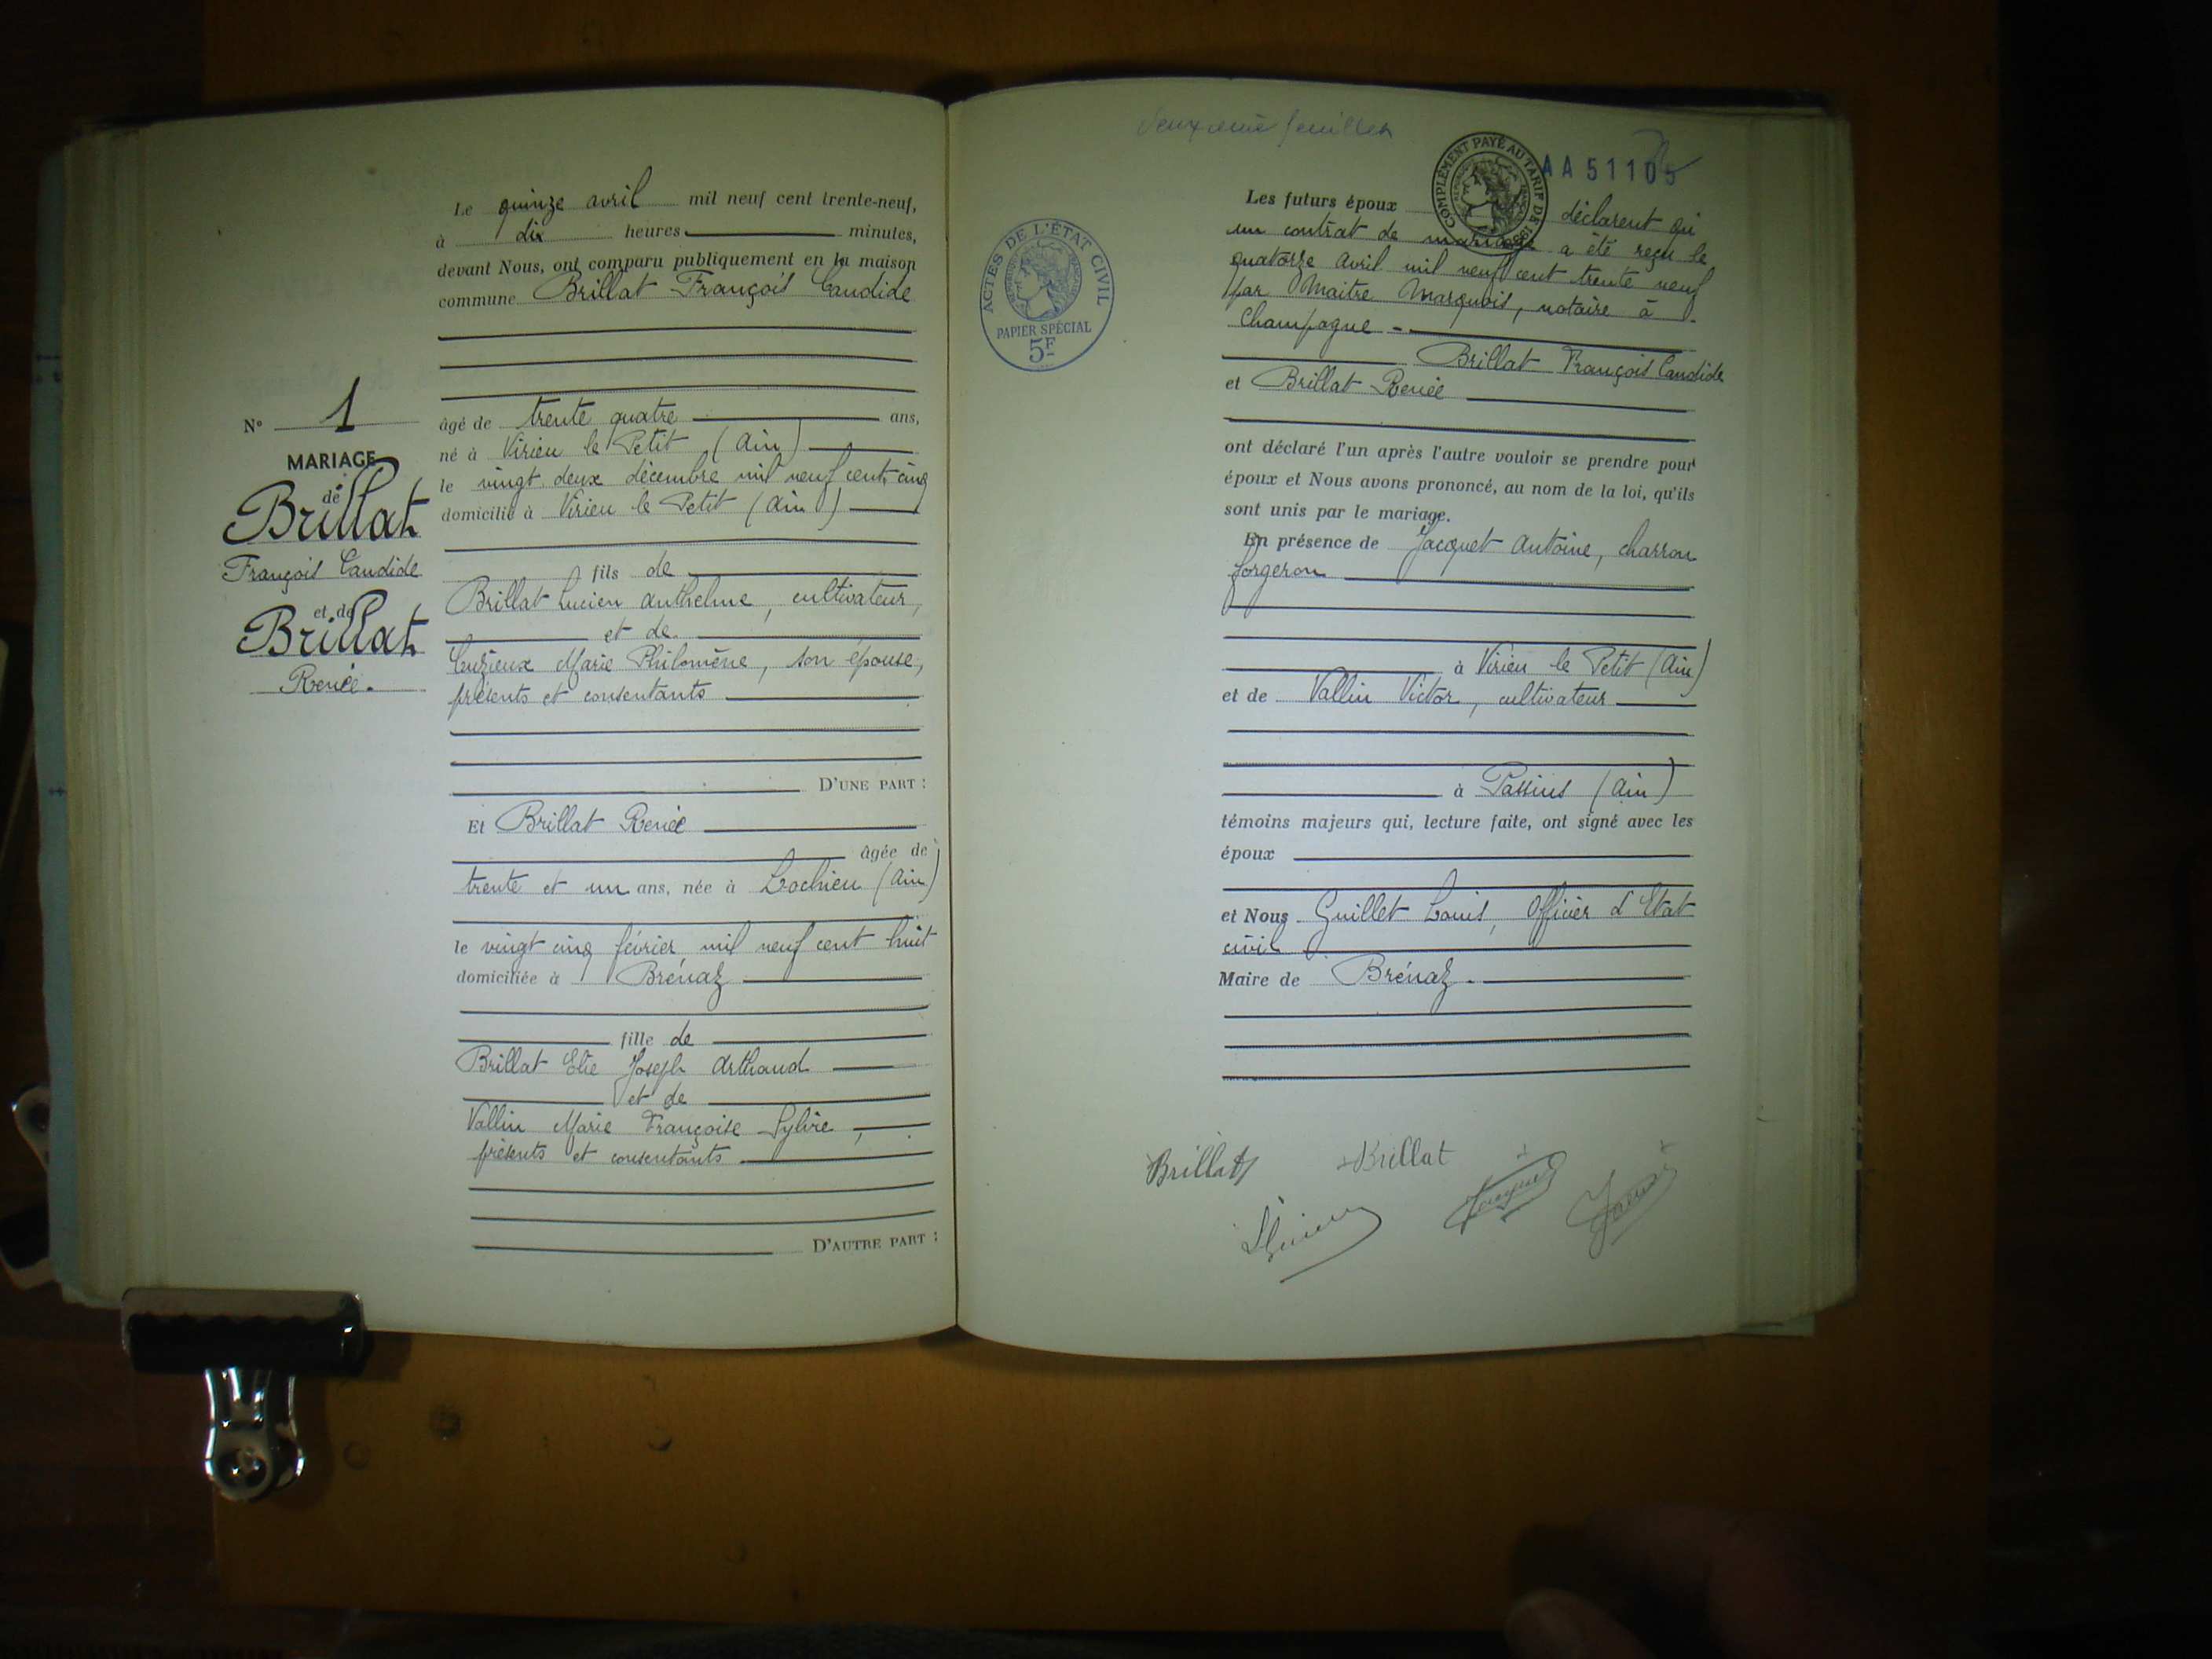 Le quinze avril mil neuf cent trente-neuf,
à dix heures minutes,
devant Nous, ont comparu publiquement en la maison
commune Brillat François Candide
âgé de trente quatre ans,
né à Virieu le Petit (Ain)
le vingt deux décembre mil neuf cent cinq
domicilié à Virieu le Petit (Ain)
fils de
Brillat Lucien Anthelme, cultivateur,
et de
Cuzieux Marie Philomène, son épouse,
présents et consentants
D'UNE PART :
Et Brillat Renée
âgée de
trente et un ans, née à Lochieu (Ain)
le vingt cinq février mil neuf cent huit
domiciliée à Brénaz
fille de
Brillat Elie Joseph Arthaud
et de
Vallin Marie Françoise Sylvie,
présents et consentants
D'AUTRE PART :
N° 1
MARIAGE
de
Brillat
François Candide
et de
Brillat
Renée.
deuxième feuillet
AA 51105
COMPLÉMENT PAYÉ AU TARIF DE
ACTES DE L'ÉTAT CIVIL
PAPIER SPÉCIAL
5F
Les futurs époux déclarent qu'
un contrat de mariage a été reçu le
quatorze avril mil neuf cent trente neuf
par Maitre Marquois, notaire à
Champagne -
Brillat François Candide
et Brillat Renée
ont déclaré l'un après l'autre vouloir se prendre pour
époux et Nous avons prononcé, au nom de la loi, qu'ils
sont unis par le mariage.
En présence de Jacquet Antoine, charron
forgeron
à Virieu le Petit (Ain)
et de Vallin Victor, cultivateur
à Passins (Ain)
témoins majeurs qui, lecture faite, ont signé avec les
époux
et Nous Guillet Louis, Officier d'Etat
civil
Maire de Brénaz.
Brillat Brillat